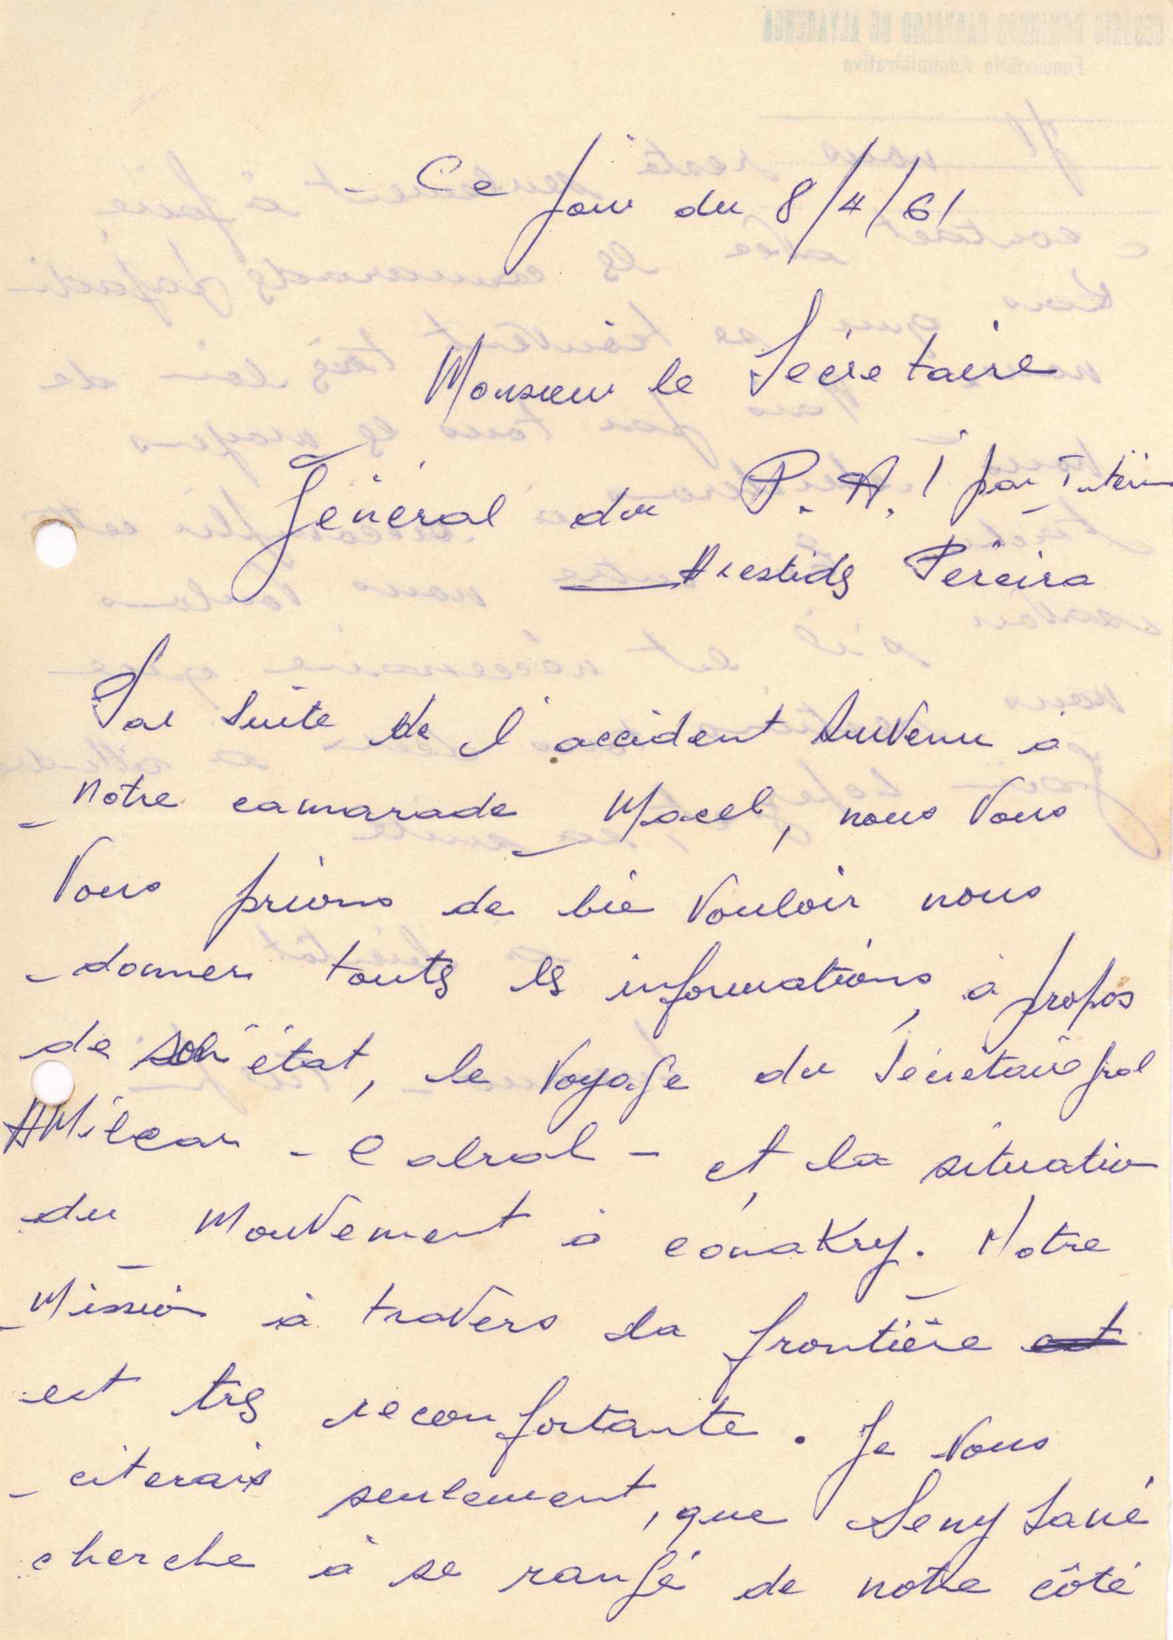 Ce Jour du 8/4/61
Monsieur le Sécretaire
Géneral du P.A.I par Intérim
Arestides Péreira
Par suite de l'accident survenu à
notre camarade Macel, nous Vous
Vous prions de bie vouloir nous
donner toutes les informations, à propos
de son état, le voyage du Sécrétaire gral
AMilcar - Cabral - et la situation
du Mouvement à conakry. Notre
Mission à travers la frontière est
est très reconfortante. Je vous
citerais seulement, que Seny Sané
cherche à se rangé de notre côté